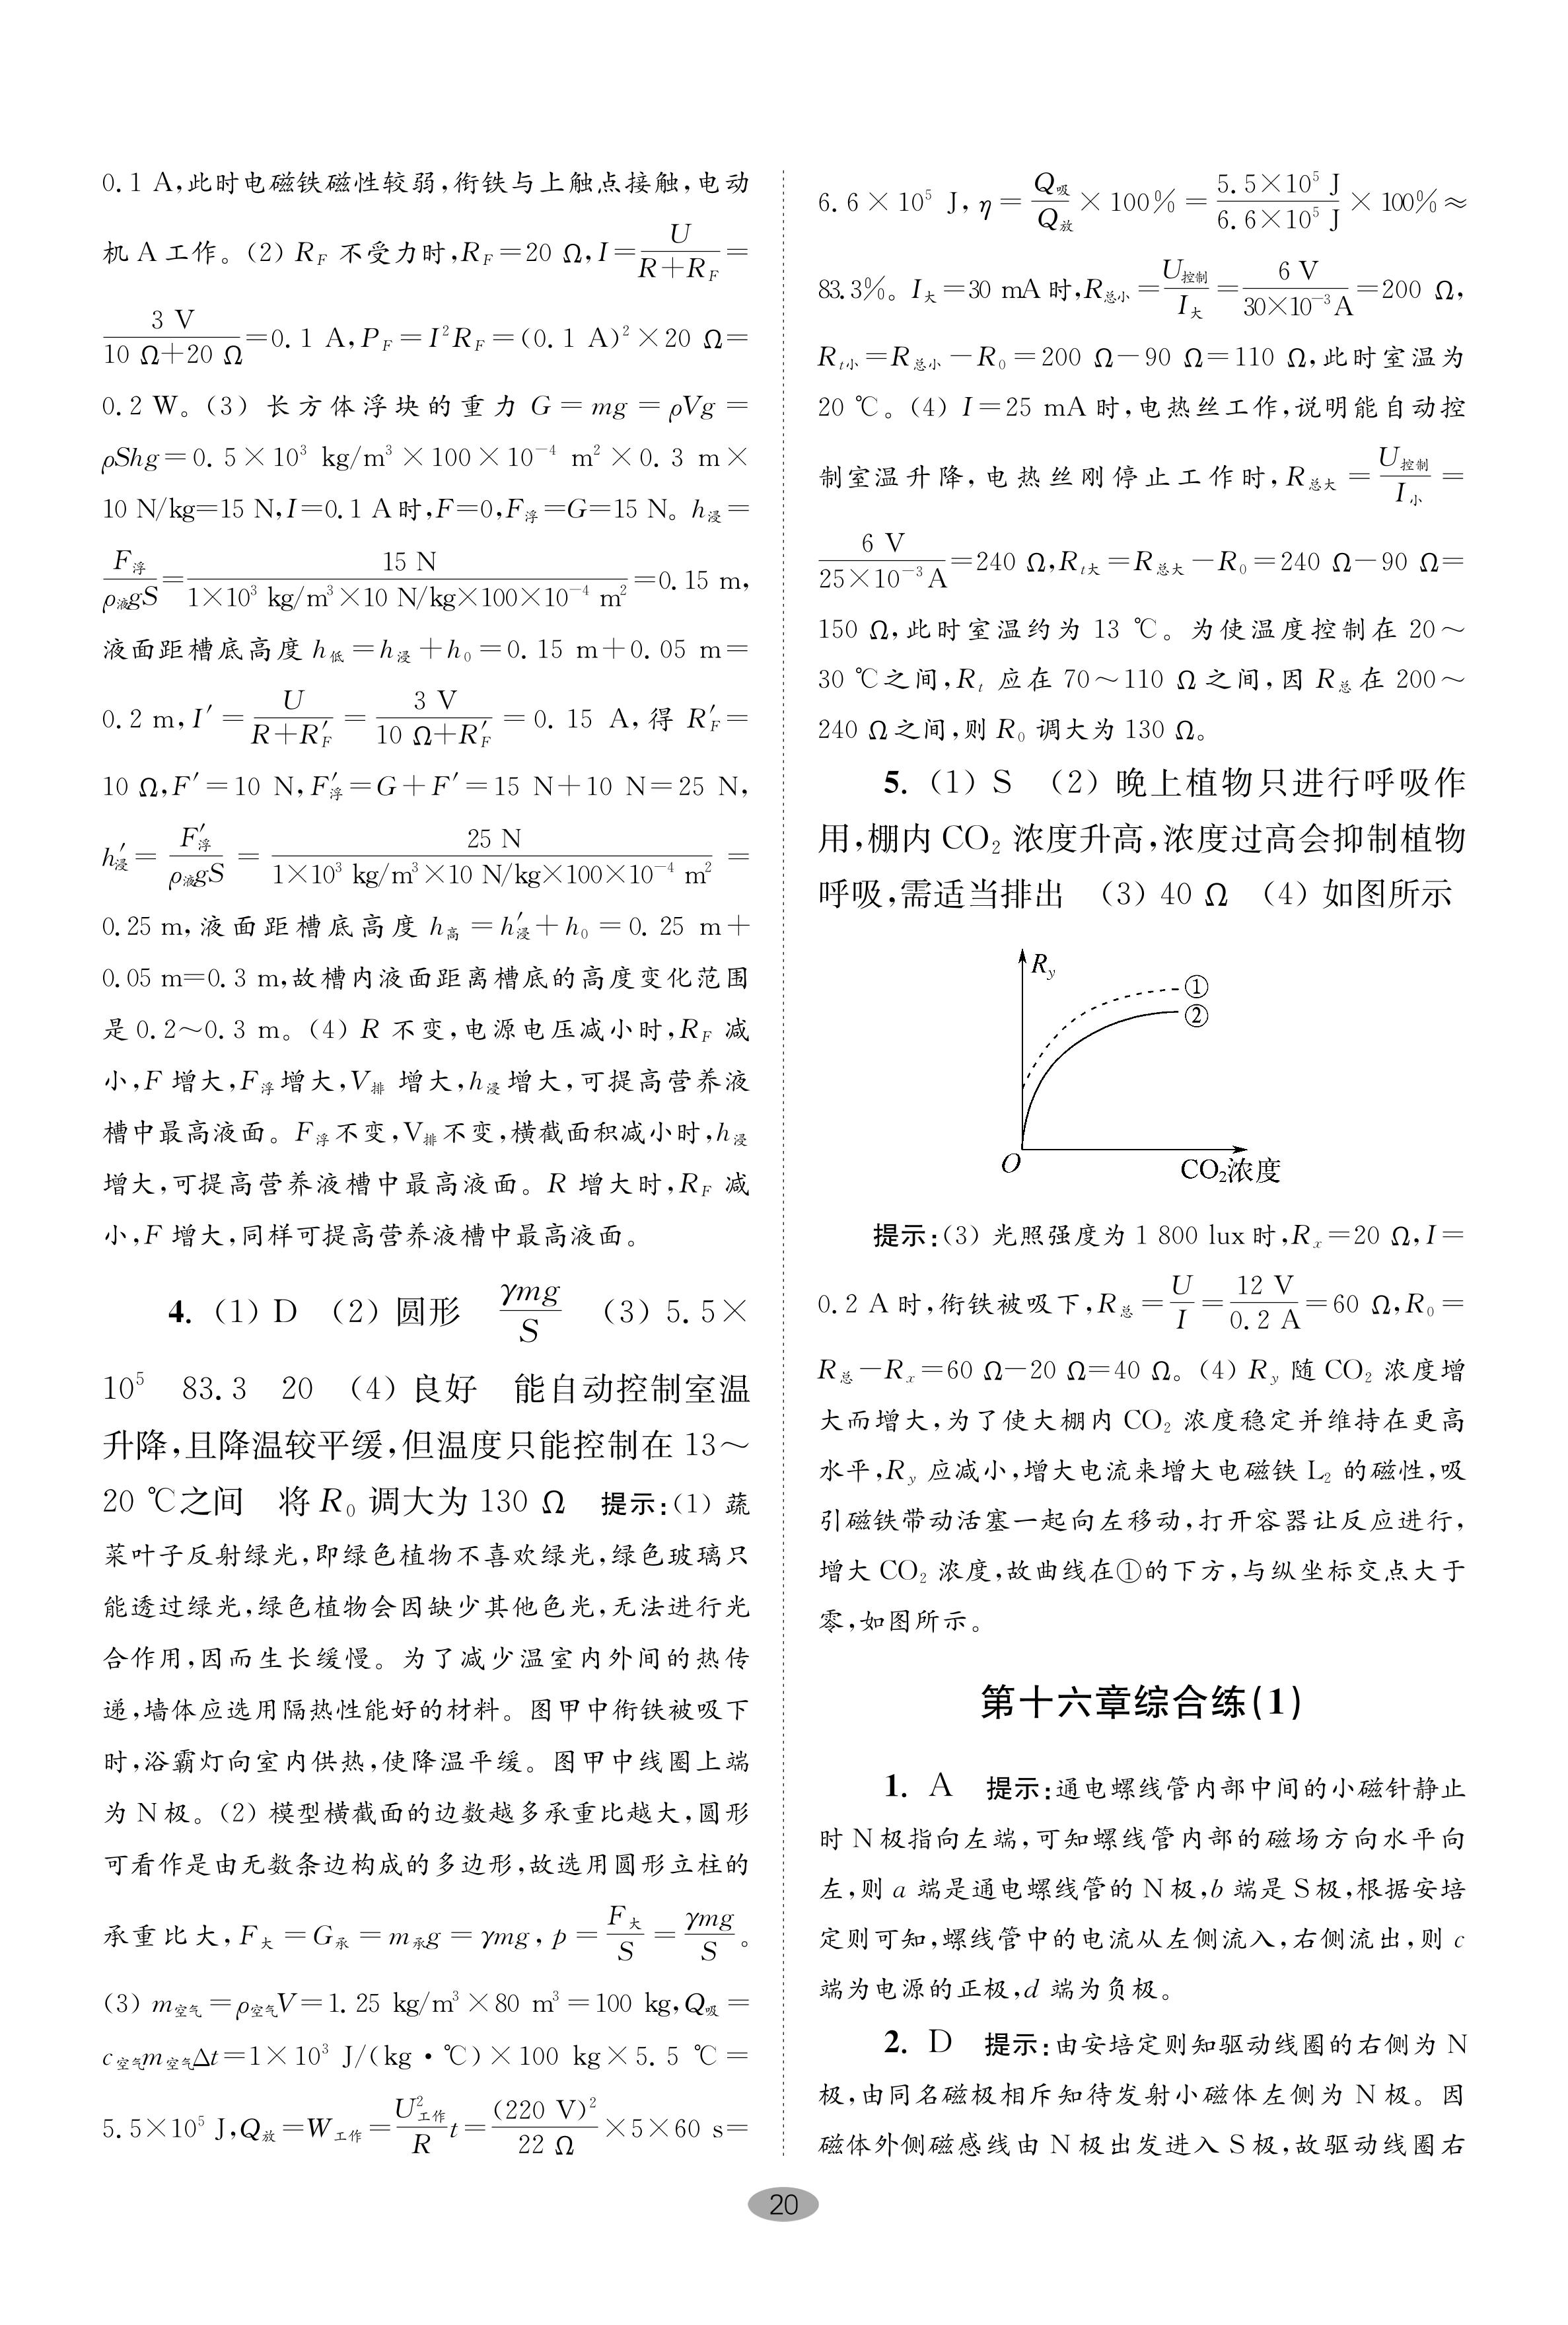 0.1 A,此时电磁铁磁性较弱,衔铁与上触点接触,电动
机 A 工作。(2) R_F 不受力时,R_F=20 Ω,I=U/(R+R_F)=
3 V/(10 Ω+20 Ω)=0.1 A,P_F=I²R_F=(0.1 A)²×20 Ω=
0.2 W。(3) 长方体浮块的重力 G=mg=ρVg=
ρShg=0.5×10³ kg/m³×100×10⁻⁴ m²×0.3 m×
10 N/kg=15 N,I=0.1 A时,F=0,F浮=G=15 N。h浸=
F浮/(ρ液gS)=15 N/(1×10³ kg/m³×10 N/kg×100×10⁻⁴ m²)=0.15 m,
液面距槽底高度 h低=h浸+h₀=0.15 m+0.05 m=
0.2 m,I′=U/(R+R′_F)=3 V/(10 Ω+R′_F)=0.15 A,得 R′_F=
10 Ω,F′=10 N,F′浮=G+F′=15 N+10 N=25 N,
h′浸=F′浮/(ρ液gS)=25 N/(1×10³ kg/m³×10 N/kg×100×10⁻⁴ m²)=
0.25 m,液面距槽底高度 h高=h′浸+h₀=0.25 m+
0.05 m=0.3 m,故槽内液面距离槽底的高度变化范围
是 0.2～0.3 m。(4) R 不变,电源电压减小时,R_F 减
小,F 增大,F浮增大,V排 增大,h浸增大,可提高营养液
槽中最高液面。F浮不变,V排不变,横截面积减小时,h浸
增大,可提高营养液槽中最高液面。R 增大时,R_F 减
小,F 增大,同样可提高营养液槽中最高液面。
4. (1) D (2) 圆形 γmg/S (3) 5.5×
10⁵ 83.3 20 (4) 良好 能自动控制室温
升降,且降温较平缓,但温度只能控制在 13～
20 ℃之间 将 R₀ 调大为 130 Ω 提示:(1) 蔬
菜叶子反射绿光,即绿色植物不喜欢绿光,绿色玻璃只
能透过绿光,绿色植物会因缺少其他色光,无法进行光
合作用,因而生长缓慢。为了减少温室内外间的热传
递,墙体应选用隔热性能好的材料。图甲中衔铁被吸下
时,浴霸灯向室内供热,使降温平缓。图甲中线圈上端
为 N极。(2) 模型横截面的边数越多承重比越大,圆形
可看作是由无数条边构成的多边形,故选用圆形立柱的
承重比大,F大=G承=m承g=γmg,p=F大/S=γmg/S。
(3) m空气=ρ空气V=1.25 kg/m³×80 m³=100 kg,Q吸=
c空气m空气Δt=1×10³ J/(kg·℃)×100 kg×5.5 ℃=
5.5×10⁵ J,Q放=W工作=U²工作/R t=(220 V)²/22 Ω×5×60 s=
6.6×10⁵ J,η=Q吸/Q放×100%=5.5×10⁵ J/6.6×10⁵ J×100%≈
83.3%。I大=30 mA时,R总小=U控制/I大=6 V/(30×10⁻³A)=200 Ω,
R_t小=R总小-R₀=200 Ω-90 Ω=110 Ω,此时室温为
20 ℃。(4) I=25 mA时,电热丝工作,说明能自动控
制室温升降,电热丝刚停止工作时,R总大=U控制/I小=
6 V/(25×10⁻³A)=240 Ω,R_t大=R总大-R₀=240 Ω-90 Ω=
150 Ω,此时室温约为 13 ℃。为使温度控制在 20～
30 ℃之间,R_t 应在 70～110 Ω之间,因 R总在 200～
240 Ω之间,则 R₀ 调大为 130 Ω。
5. (1) S (2) 晚上植物只进行呼吸作
用,棚内 CO₂ 浓度升高,浓度过高会抑制植物
呼吸,需适当排出 (3) 40 Ω (4) 如图所示
R_y
①
②
O
CO₂浓度
提示:(3) 光照强度为 1 800 lux时,R_x=20 Ω,I=
0.2 A时,衔铁被吸下,R总=U/I=12 V/0.2 A=60 Ω,R₀=
R总-R_x=60 Ω-20 Ω=40 Ω。(4) R_y 随 CO₂ 浓度增
大而增大,为了使大棚内 CO₂ 浓度稳定并维持在更高
水平,R_y 应减小,增大电流来增大电磁铁 L₂ 的磁性,吸
引磁铁带动活塞一起向左移动,打开容器让反应进行,
增大 CO₂ 浓度,故曲线在①的下方,与纵坐标交点大于
零,如图所示。
第十六章综合练(1)
1. A 提示:通电螺线管内部中间的小磁针静止
时 N极指向左端,可知螺线管内部的磁场方向水平向
左,则 a 端是通电螺线管的 N极,b 端是 S极,根据安培
定则可知,螺线管中的电流从左侧流入,右侧流出,则 c
端为电源的正极,d 端为负极。
2. D 提示:由安培定则知驱动线圈的右侧为 N
极,由同名磁极相斥知待发射小磁体左侧为 N 极。因
磁体外侧磁感线由 N极出发进入 S极,故驱动线圈右
20